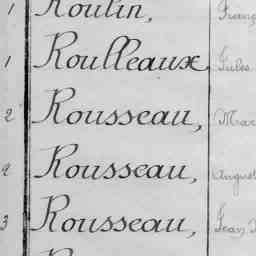 1 Roulin,
1 Roulleaux, Jules
2 Rousseau, Mar
2 Rousseau, August
3 Rousseau, Jean